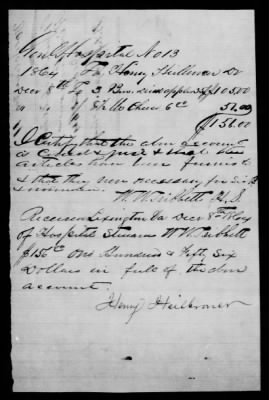 Genl Hospital No 13
1864 To Henry Heilbroner Dr
Decr 8th To 3 dried apples $105.00
" " " 8 6 51.00
$156.00
I Certify that the above account
is correct & just & that the
articles have been furnished
& that they were necessary for Sick &
wounded.
W. W. H. S.
Received Lexington Va Decr 8th 1864
of Hospital Steward W. W.
$156 One Hundred & Fifty Six
Dollars in full of the above
account.
Henry Heilbroner